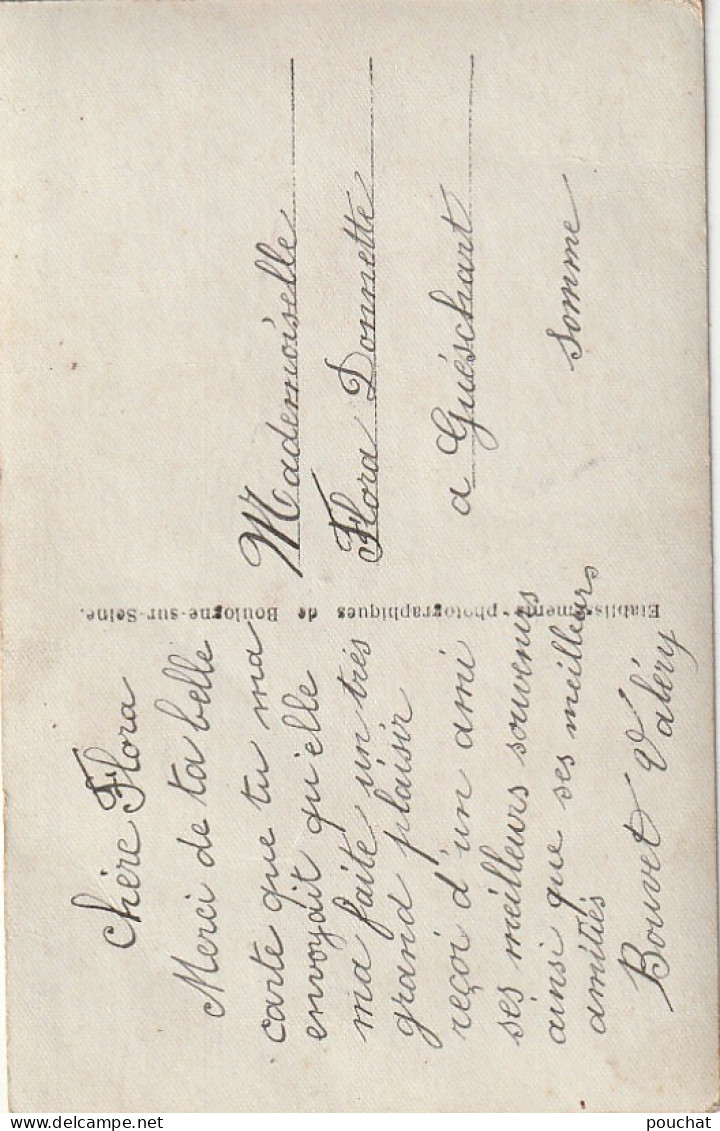 Chère Flora
Merci de ta belle
carte que tu ma
envoyait qu'elle
ma faite un très
grand plaisir
reçoi d'un ami
ses meilleurs souvenirs
ainsi que ses meilleurs
amitiés
Bouvet Valéry
Etablissements photographiques de Boulogne-sur-Seine.
Mademoiselle
Flora Donnette
a Guéschart
Somme
delcampe.net
pouchat